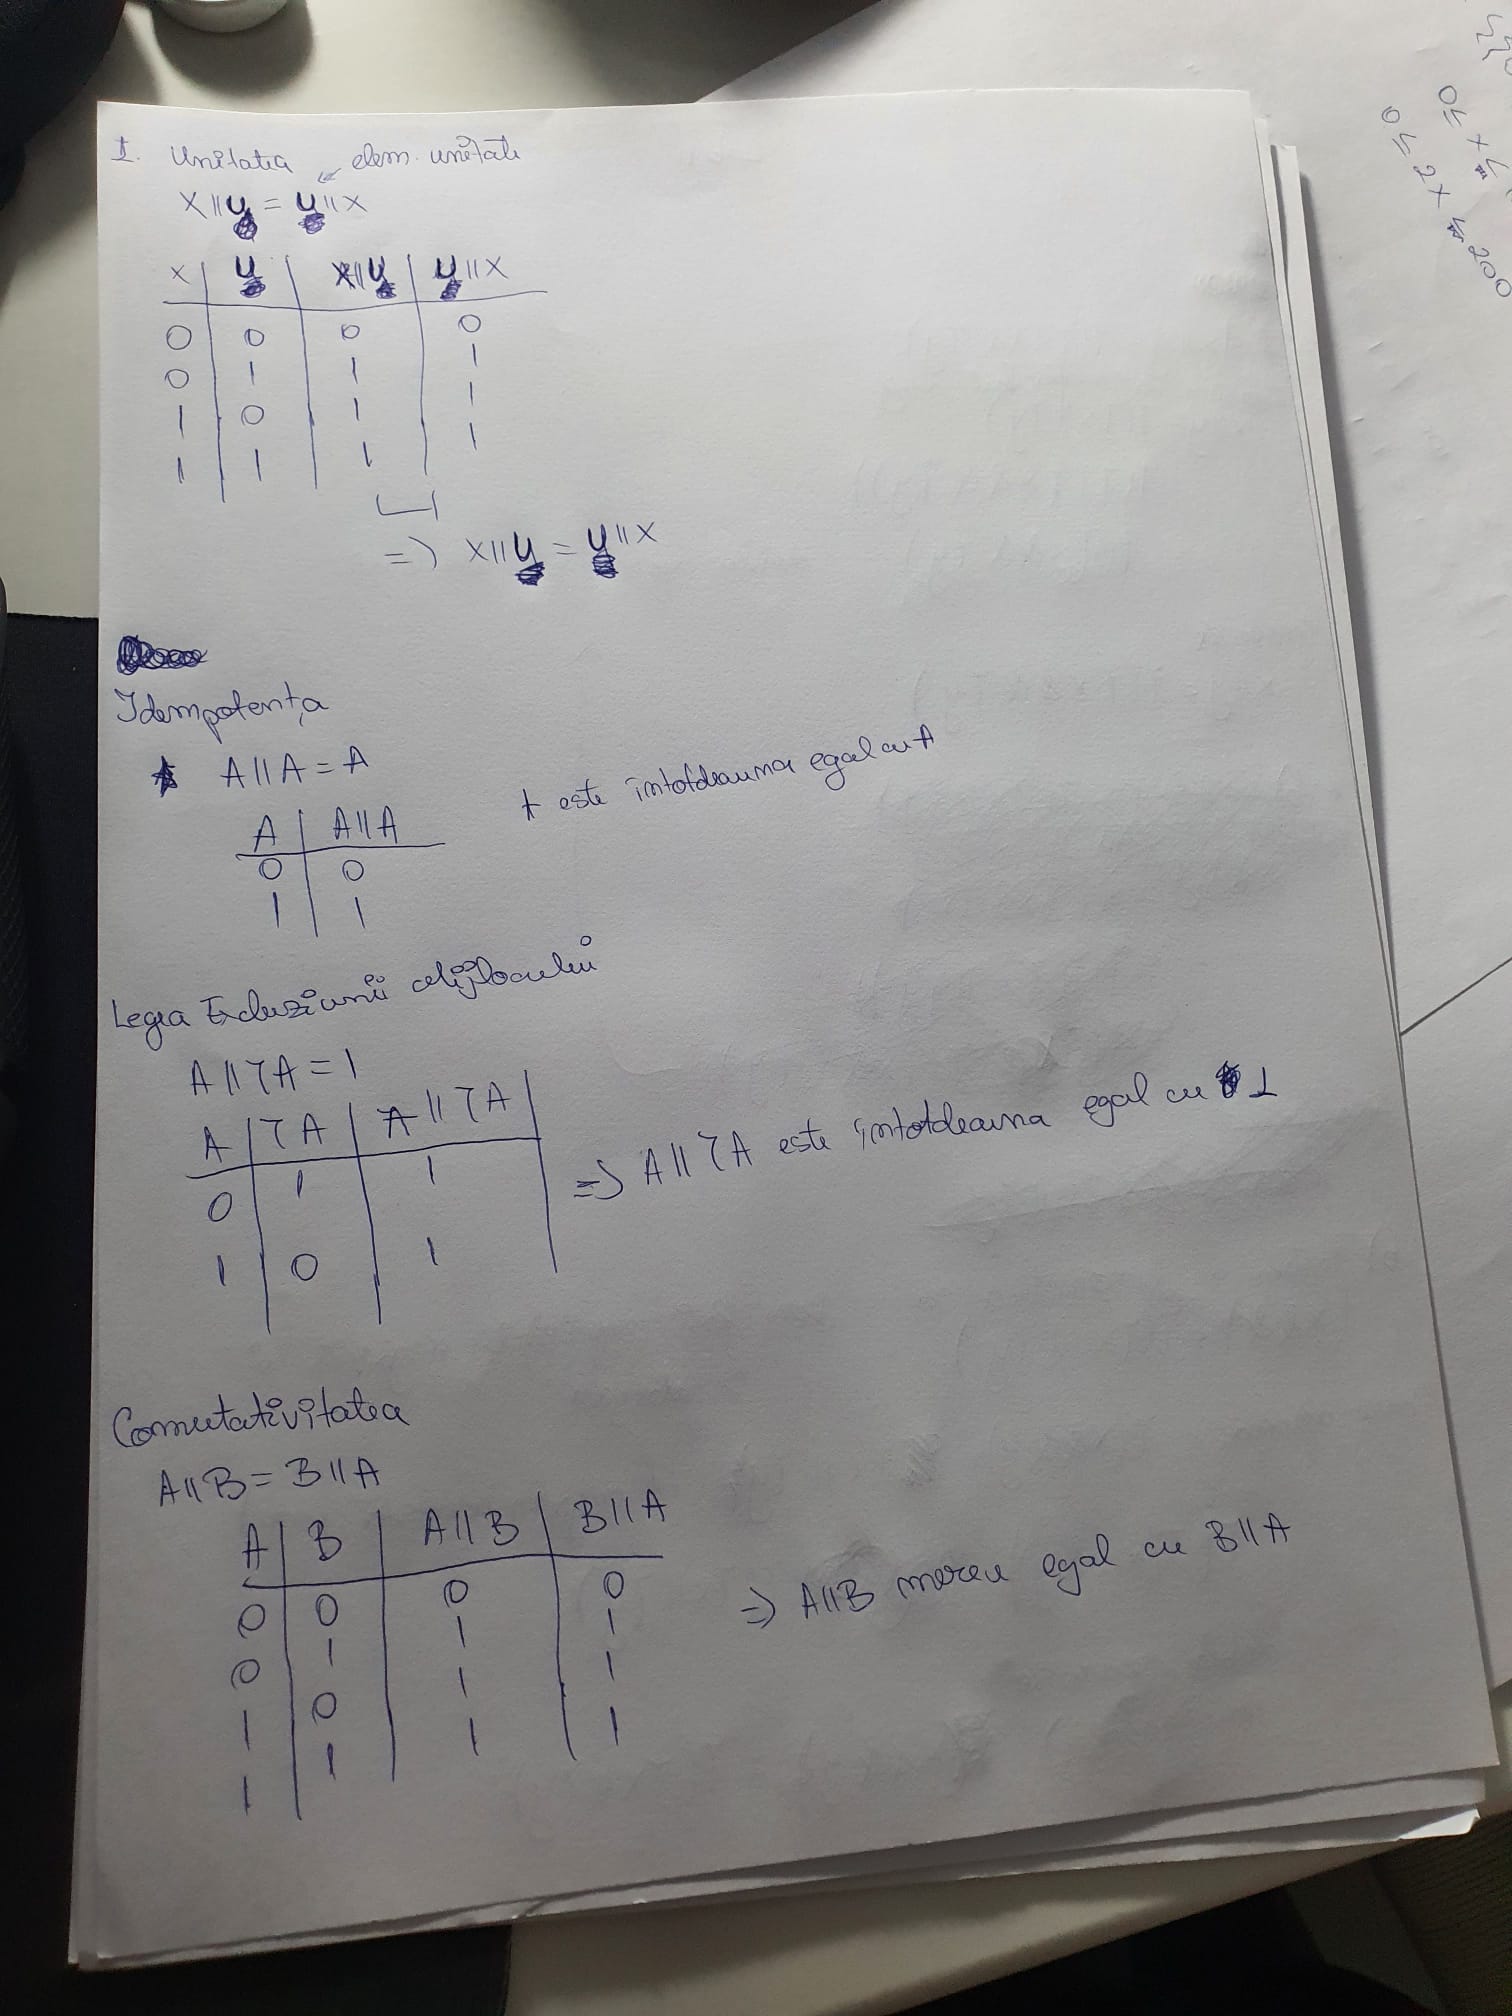 I. Unitatea elem. unitate
X || y = y || X
X | y | X || y | y || X
0 | 0 | 0 | 0
0 | 1 | 1 | 1
1 | 0 | 1 | 1
1 | 1 | 1 | 1
=> X || y = y || X
Idempotența
A || A = A
A | A || A
0 | 0
1 | 1
A este întotdeauna egal cu A
Legea Excluziunii
A || ¬A = 1
A | ¬A | A || ¬A
0 | 1 | 1
1 | 0 | 1
=> A || ¬A este întotdeauna egal cu 1
Comutativitatea
A || B = B || A
A | B | A || B | B || A
0 | 0 | 0 | 0
0 | 1 | 1 | 1
1 | 0 | 1 | 1
1 | 1 | 1 | 1
=> A || B mereu egal cu B || A
200